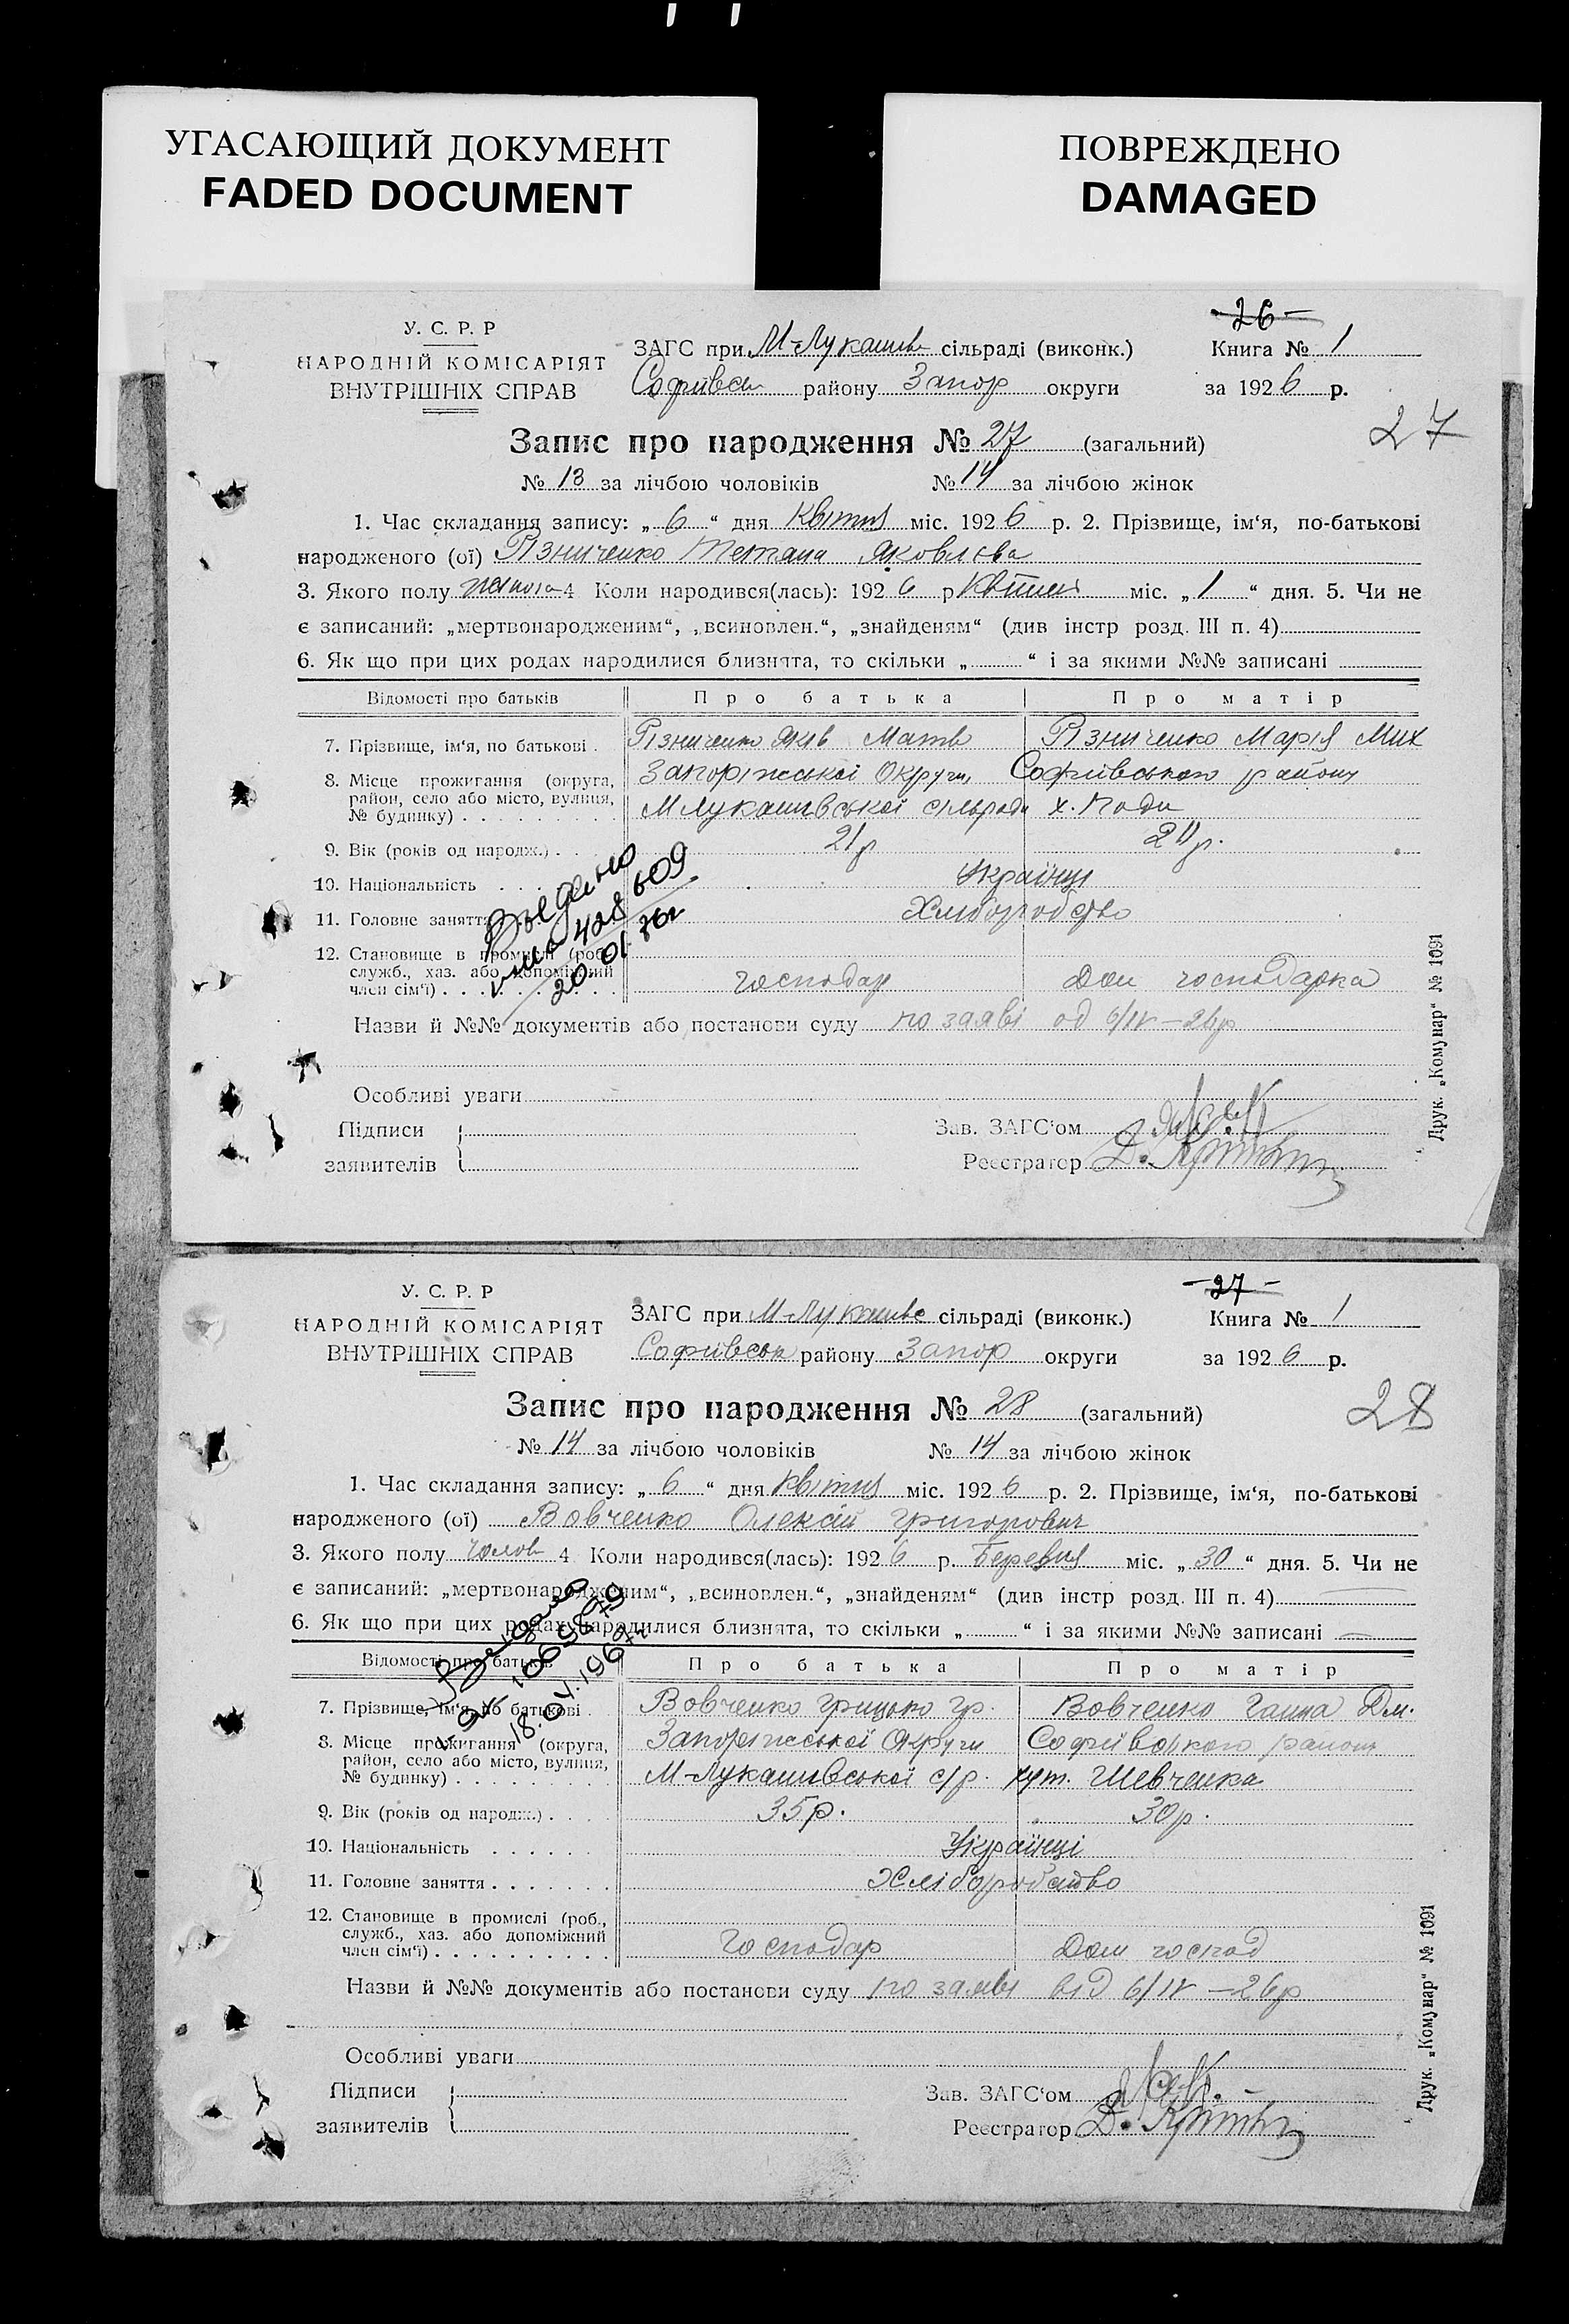 УГАСАЮЩИЙ ДОКУМЕНТ
FADED DOCUMENT
ПОВРЕЖДЕНО
DAMAGED
26
У. С. Р. Р
НАРОДНІЙ КОМІСАРІЯТ
ВНУТРІШНІХ СПРАВ
ЗАГС при М-Лукашів сільраді (виконк.)
Книга № 1
Софіївськ району Запор округи
за 1926 р.
27
Запис про народження № 27 (загальний)
№ 13 за лічбою чоловіків № 14 за лічбою жінок
1. Час складання запису: „ 6 “ дня Квітня міс. 1926 р. 2. Прізвище, ім‘я, по-батькові
народженого (ої) Різниченко Тетяна Яковлєва
3. Якого полу 4 Коли народився(лась): 1926 р Квітня міс. „ 1 “ дня. 5. Чи не
є записаний: „мертвонародженим“, „всиновлен.“, „знайденям“ (див інстр розд. III п. 4)
6. Як що при цих родах народилися близнята, то скільки „ “ і за якими №№ записані
Відомості про батьків Про батька Про матір
7. Прізвище, ім‘я, по батькові . Різниченко Яків Матв Різниченко Марія Мих
8. Місце прожигання (округа, район, село або місто, вулиця, № будинку) Запоріжської Округи Софіївського району
МЛукашівської сільради х.
9. Вік (років од народж.) . . 21р 21р.
10. Національність . . . Українці
11. Головне заняття Хліборобство
12. Становище в промислі (роб., служб., хаз. або допоміжний член сім‘ї) господар Дом господарка
428609
20 01
Назви й №№ документів або постанови суду по заяві од 6/IV–26р
Особливі уваги
Підписи
заявителів
Зав. ЗАГС‘ом
Реєстратор
Друк. „Комунар“ № 1091
27
У. С. Р. Р
НАРОДНІЙ КОМІСАРІЯТ
ВНУТРІШНІХ СПРАВ
ЗАГС при М-Лукашівс сільраді (виконк.)
Книга № 1
Софіївськ району Запор округи
за 1926 р.
28
Запис про народження № 28 (загальний)
№ 14 за лічбою чоловіків № 14 за лічбою жінок
1. Час складання запису: „ 6 “ дня Квітня міс. 1926 р. 2. Прізвище, ім‘я, по-батькові
народженого (ої) Вовченко Олексій Григорович
3. Якого полу Чолов 4 Коли народився(лась): 1926 р. Березня міс. „ 30 “ дня. 5. Чи не
є записаний: „мертвонародженим“, „всиновлен.“, „знайденям“ (див інстр розд. III п. 4)
6. Як що при цих родах народилися близнята, то скільки „ “ і за якими №№ записані
Відомості про батьків Про батька Про матір
7. Прізвище, ім‘я, по батькові . Вовченко Грицько Гр. Вовченко Ганна Дм.
8. Місце прожигання (округа, район, село або місто, вулиця, № будинку) Запоріжської Округи Софіївського району
М-Лукашивської с/р. хут. Шевченка
9. Вік (років од народж.) . . . 35р. 30р.
10. Національність . . . . . . Українці
11. Головне заняття . . . . . . . Хліборобство
12. Становище в промислі (роб., служб., хаз. або допоміжний член сім‘ї) Господар Дом господ
Назви й №№ документів або постанови суду по заяві від 6/IV–26р
Особливі уваги
Підписи
заявителів
Зав. ЗАГС‘ом
Реєстратор
Друк. „Комунар“ № 1091